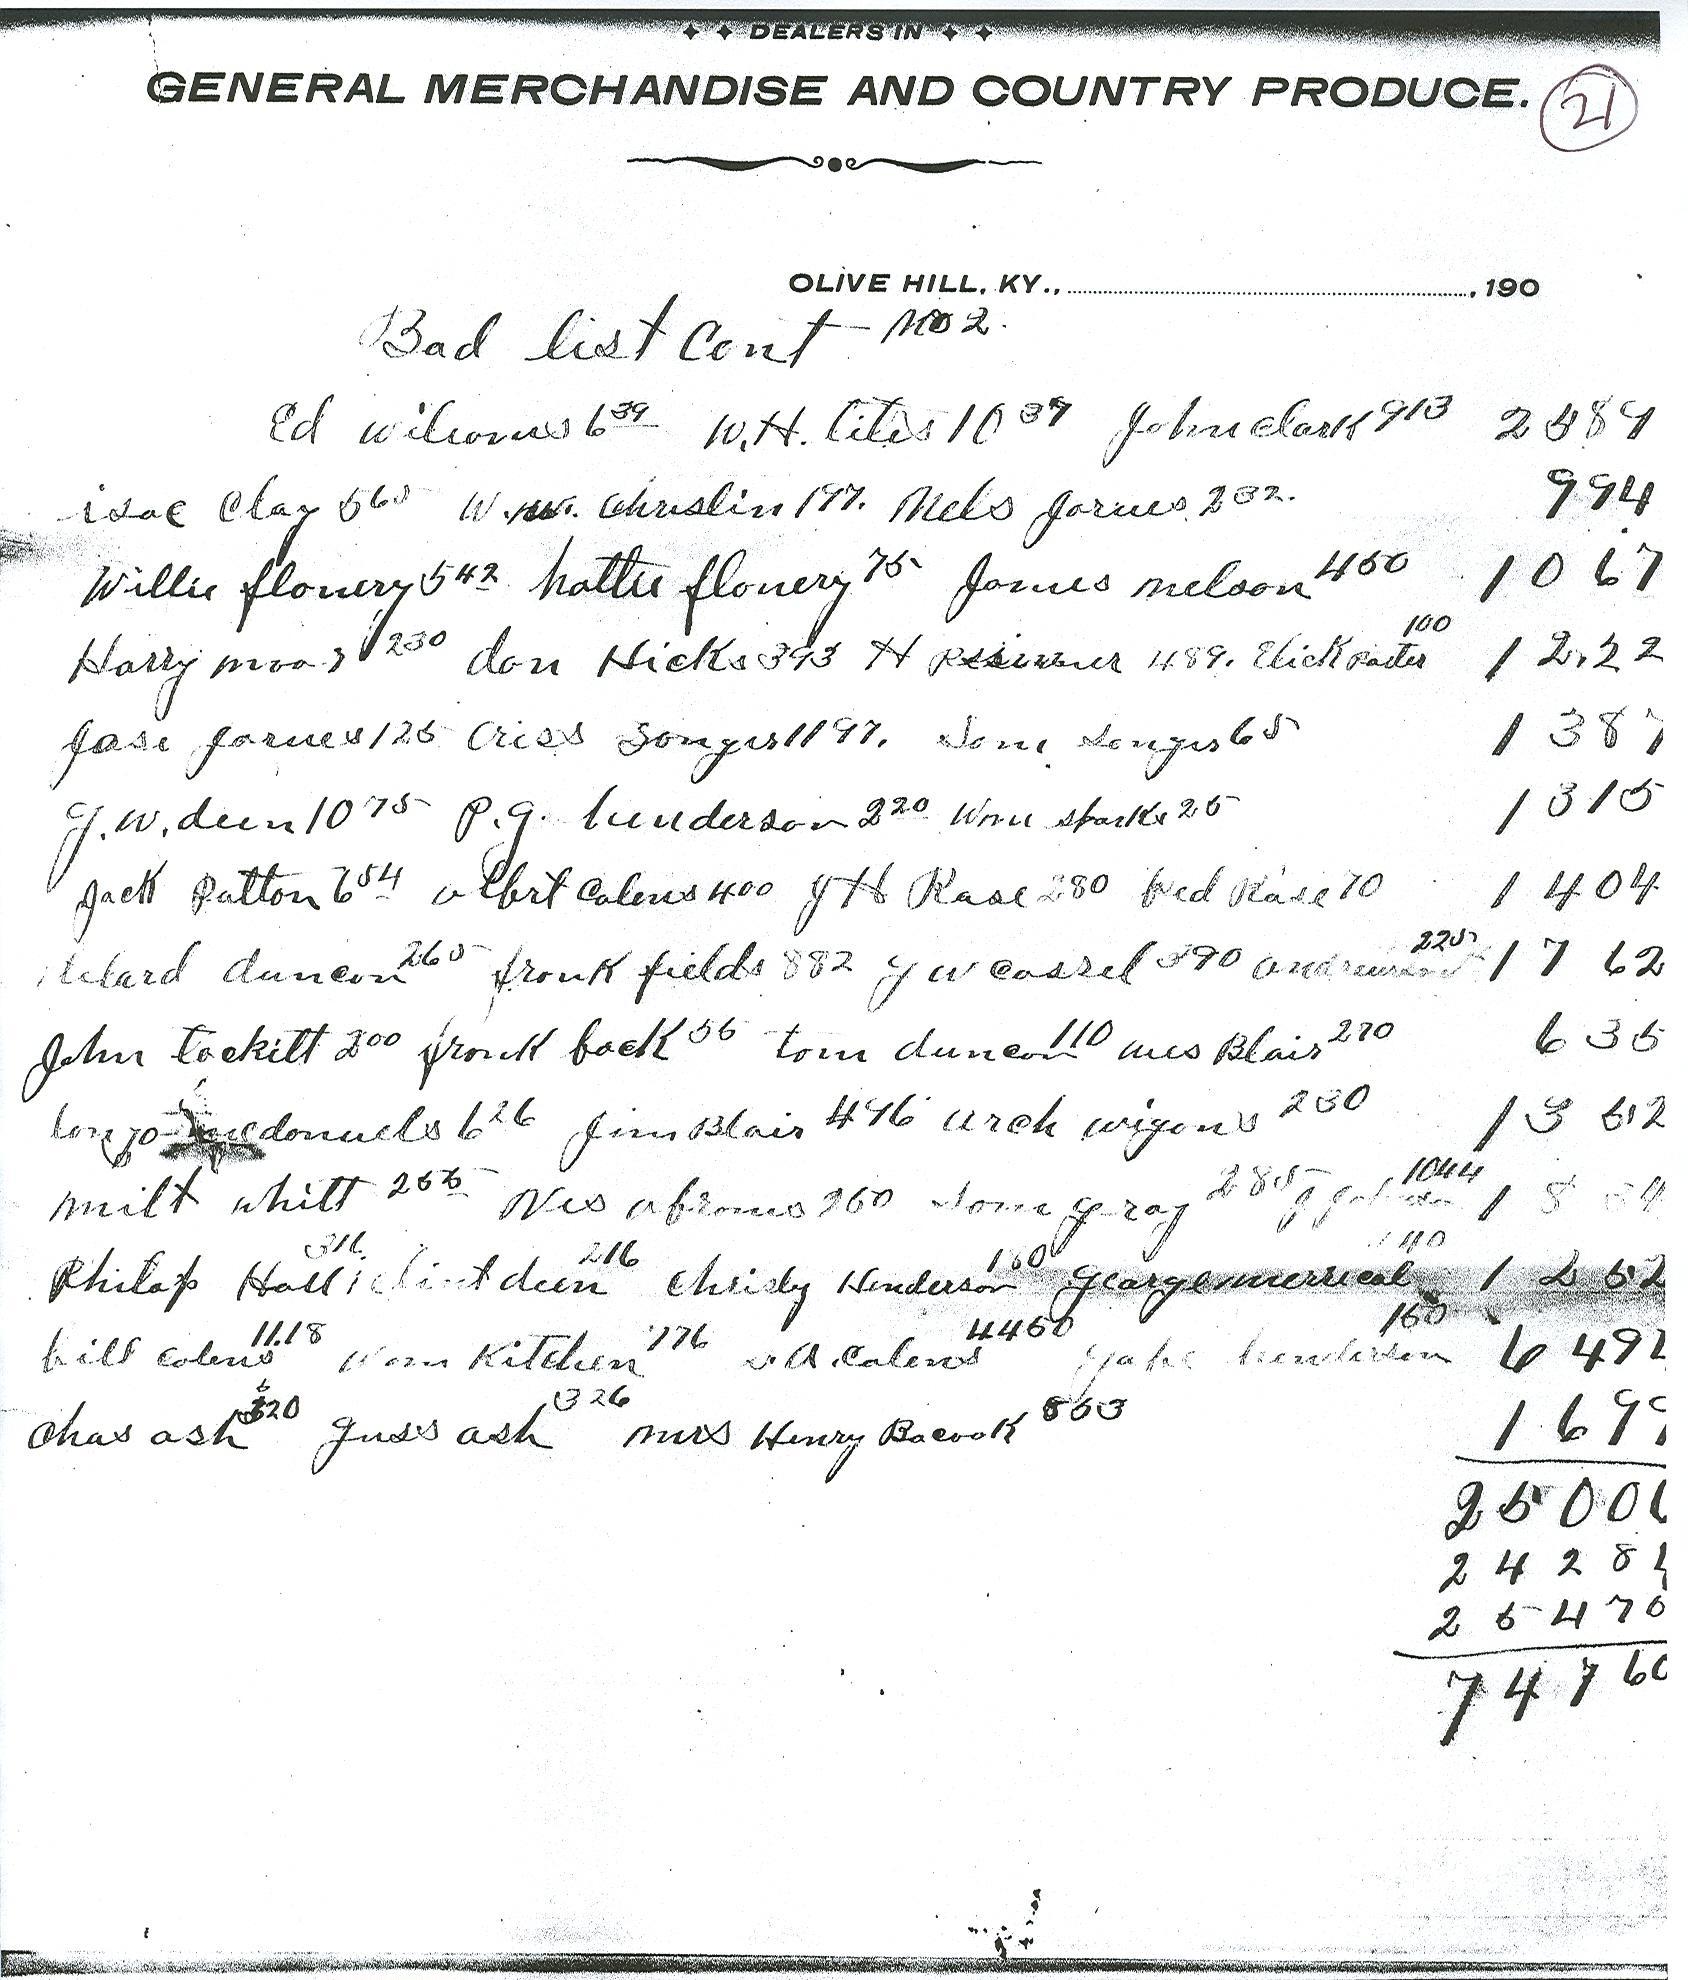 DEALERS IN
GENERAL MERCHANDISE AND COUNTRY PRODUCE. 21
OLIVE HILL, KY., , 190
Bad list Cont No 2.
Ed 6 39 W.H. lites 10 37 John Clark 913 2589
isac Clay 5 65 W.W. 197. Mels Jarves 232. 994
Willie flonery 5 42 hattie flonery 75 James nelson 450 1067
Harry moor 230 dan Hicks 393 H 489. Elick 100 12.22
Jase Jarves 125 Criss Songer 1197. Songer 65 1387
J.W. deen 10 75 P.G. henderson 2 20 Wm sparks 25 1315
Jack Patton 6 54 albrt Colens 400 J H Rase 280 Rase 70 1404
duncon 265 fronk fields 882 J W Cassel 390 225 1762
John tackitt 200 fronk back 55 tom duncon 110 Blair 270 635
lonzo mcdonuels 6 26 Jim Blair 496 arch wigons 230 1352
milt whitt 255 abroms 260 gray 285 1044 18 4
Philap Hall 316 Clint deen 216 Christy Henderson 180 George merrical 140 1252
bill Colens 11.18 Wm Kitchen 776 A. Colens 4450 henderson 150 649
Chas ash 520 Guss ash 326 mrs Henry Bacook 853 1699
2500
2428
25470
74760